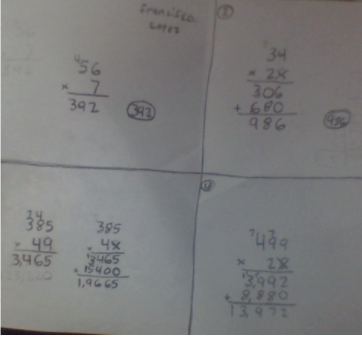 Francisco
②
56
× 7
392
392
34
× 28
306
+ 680
986
986
24
385
× 49
3,465
385
× 48
3465
15400
1,9665
499
× 28
3,992
+ 8,880
13,972